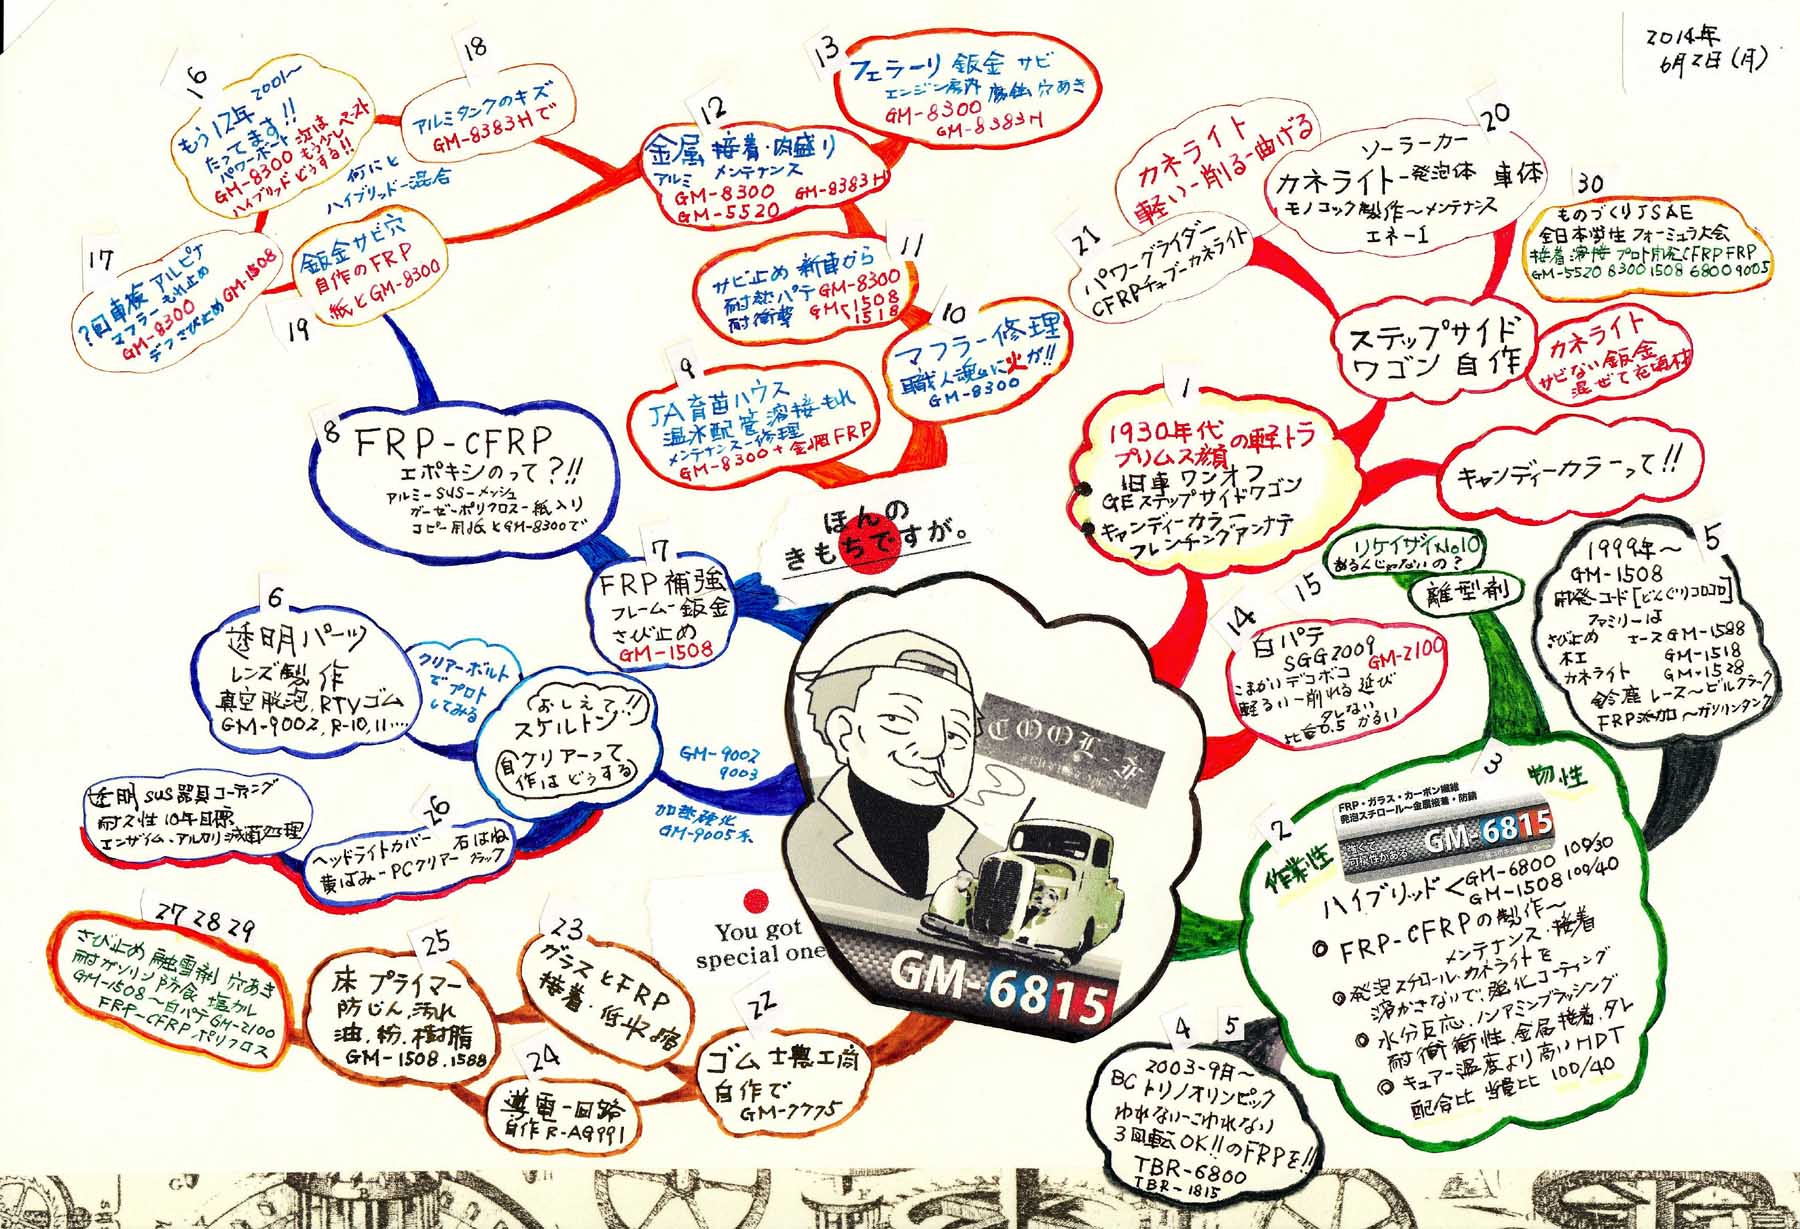 2014年
6月2日(月)
16
もう12年 2001〜
たってます!!
パワーボート
GM-8300 次は
もう少し ペースト
ハイブリッド どうする!!
18
アルミタンクのキズ
GM-8383Hで
何にと
ハイブリッドー混合
17
?回車検 アルピナ
もれ止め
マフラー
GM-8300
デフさび止め GM-1508
19
鈑金サビ穴
自作のFRP
紙とGM-8300
13
フェラーリ 鈑金 サビ
腐蝕 穴あき
GM-8300
GM-8383H
12
金属 接着・肉盛り
アルミ メンテナンス
GM-8300 GM-8383H
GM-5520
11
サビ止め 新車から
耐熱パテ GM-8300
耐衝撃 GM-1508
1518
10
マフラー修理
職人魂に火が!!
GM-8300
9
JA育苗ハウス
温水配管溶接もれ
メンテナンスー修理
GM-8300+金網FRP
8
FRP-CFRP
エポキシのって?!!
アルミーSUSーメッシュ
ガーゼーポリクロスー紙入り
コピー用紙とGM-8300で
7
FRP補強
フレームー鈑金
さび止め
GM-1508
ほんの
きもちですが。
6
透明パーツ
レンズ製作
真空脱泡、RTVゴム
GM-9002、R-10,11....
クリアーボルト
でプロト
してみる
(おしえて!!)
スケルトン
自作 クリアーって
はどうする
GM-9002
9003
加熱強化
GM-9005系
透明SUS器具コーティング
耐久性10年目標
エンザイム・アルカリ滅菌処理
26
ヘッドライトカバー 石はね
黄ばみーPCクリアー クラック
27 28 29
さび止め 融雪剤 穴あき
耐ガソリン 防食 塩カル
GM-1508〜白パテGM-2100
FRP-CFRPポリクロス
25
床 プライマー
防じん、汚れ
油、粉、樹脂
GM-1508、1588
23
ガラスとFRP
接着・低収縮
24
導電ー回路
自作R-AG991
22
ゴム 士農工商
自作で
GM-7775
You got
special one
COOL-
GM-6815
21
パワーグライダー
CFRPチューブーカネライト
カネライト
軽いー削るー曲げる
20
ソーラーカー
カネライトー発泡体 車体
モノコック製作〜メンテナンス
エネー1
30
ものづくりJSAE
全日本学生フォーミュラ大会
接着 溶接 プロト開発CFRP FRP
GM-5520 8300 1508 6800 9005
ステップサイド
ワゴン 自作
カネライト
サビない鈑金
混ぜて充填材
1
1930年代の軽トラ
プリムス顔
旧車ワンオフ
GEステップサイドワゴン
キャンディーカラー
フレンチングアンナテ
キャンディーカラーって!!
リケイザイNo10
あるんじゃないの?
離型剤
5
1999年〜
GM-1508
開発コード[どんぐりコロコロ]
ファミリーは
さび止め エース GM-1588
木工 GM-1518
カネライト GM-1528
鈴鹿レース〜ビルクラック
FRP添加〜ガソリンタンク
14 15
白パテ
SGG2009 GM-2100
こまかいデコボコ
軽るいー削れる 延び
タレない
比重0.5 かるい
2
作業性
3
物性
FRP・ガラス・カーボン繊維
発泡スチロール〜金属接着・防錆
強くて
可撓性がある GM-6815
ハイブリッド<GM-6800 100/30
GM-1508 100/40
◎FRP-CFRPの製作〜
メンテナンス・接着
◎発泡スチロール・カネライトを
溶かさないで、強化コーティング
◎水分反応、ノンアミンブラッシング
耐衝撃性、金属接着、タレ
◎キュアー温度より高いHDT
配合比 当量比 100/40
4 5
2003-9月〜
BCトリノオリンピック
われないーこわれない
3回転OK!!のFRPを!!
TBR-6800
TBR-1815